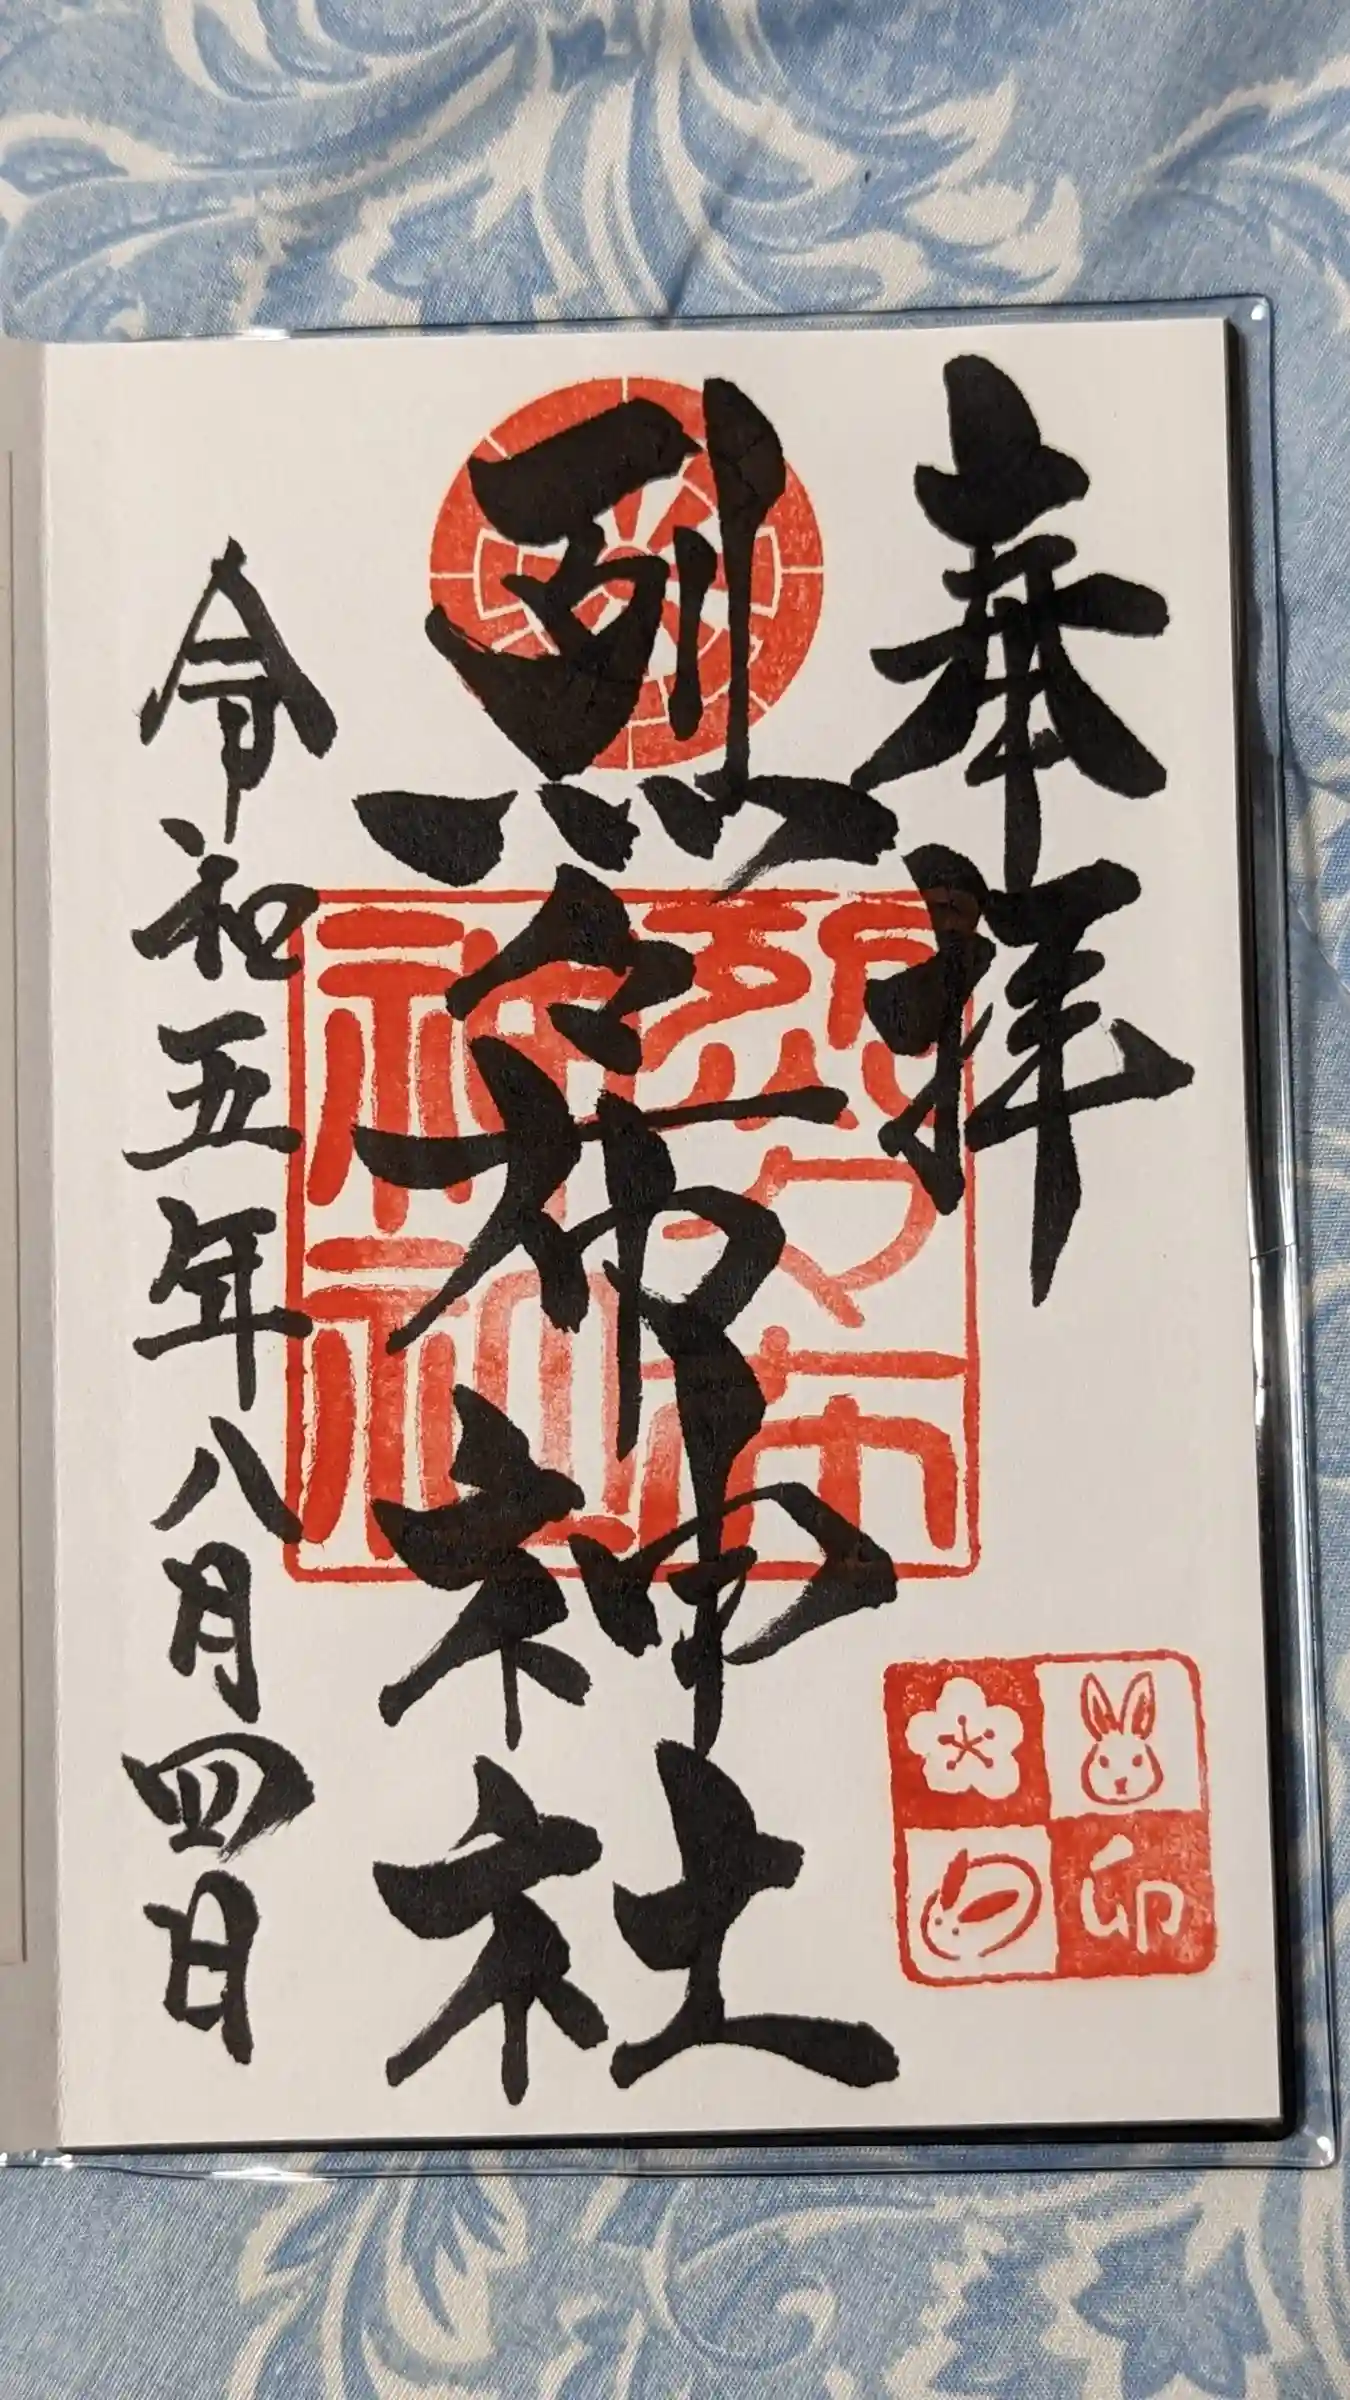 奉拝
烈々布神社
烈々布
神社
卯
令和五年八月四日